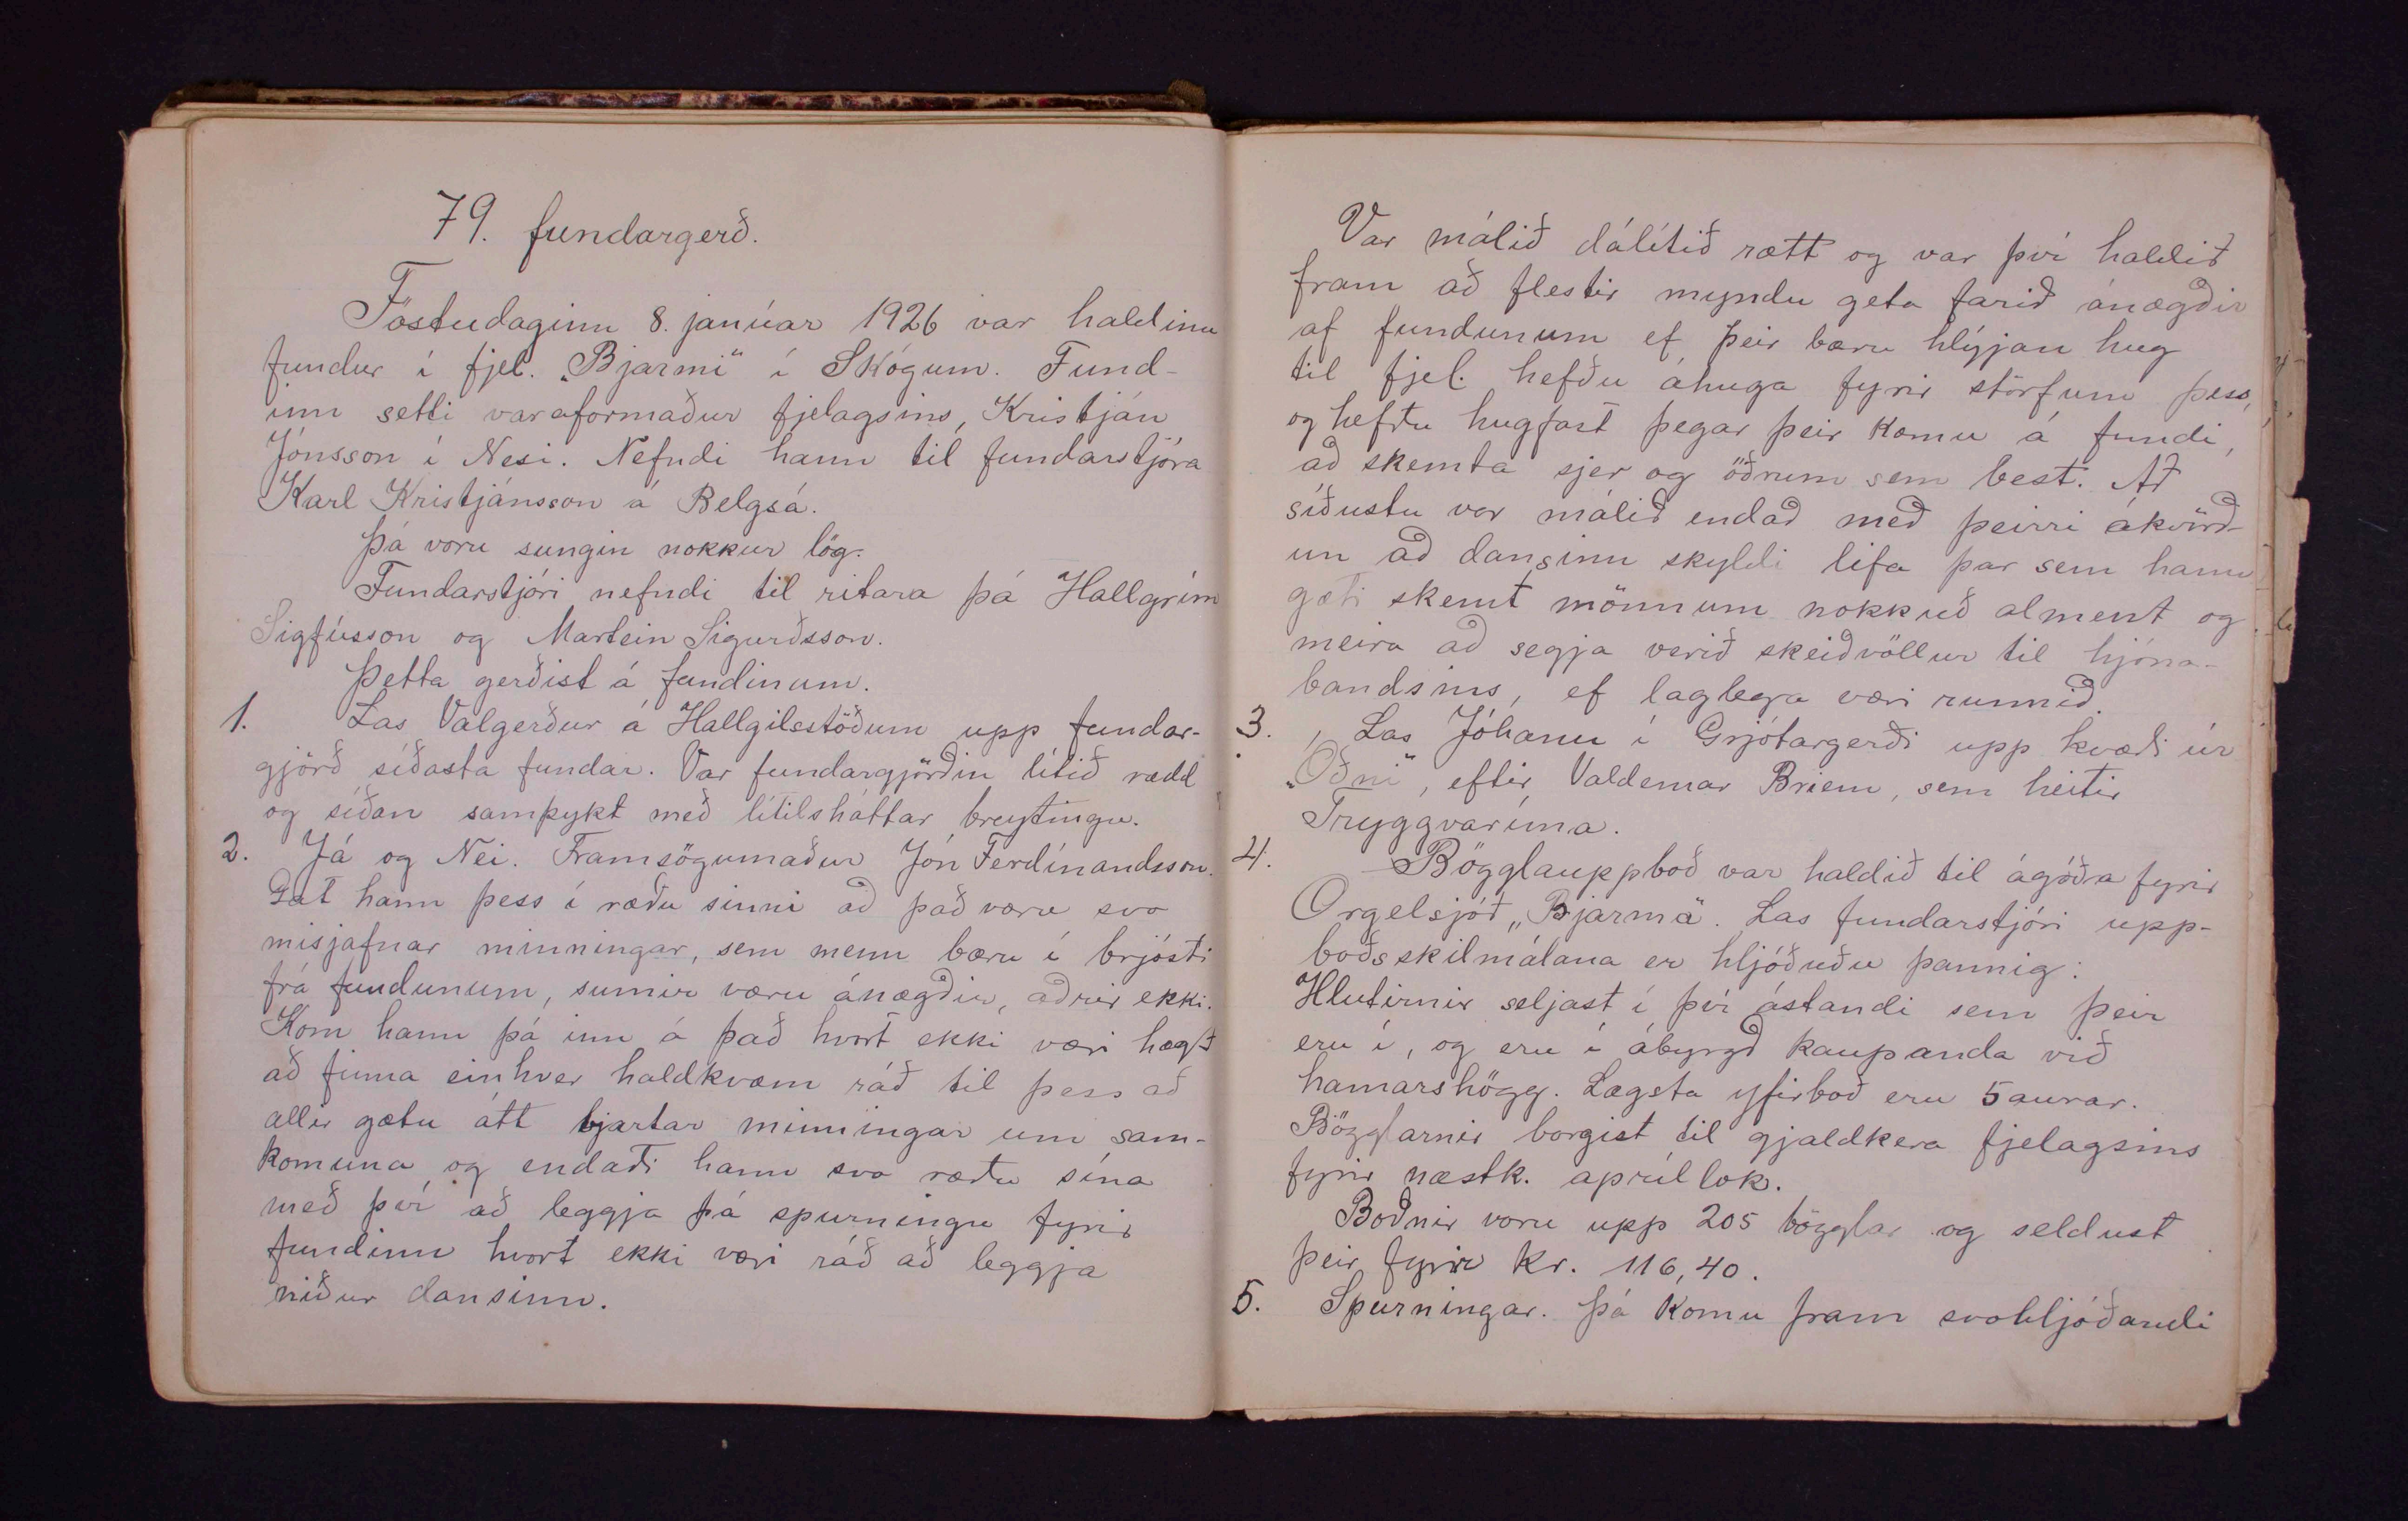 79. fundargerð.
Föstudaginn 8. janúar 1926 var haldinn
fundur í fjel. „Bjarmi" í Skógum. Fund-
inn setti varaformaður fjelagsins, Kristján
Jónsson í Nesi. Nefndi hann til fundarstjóra
Karl Kristjánsson á Belgsá.
Þá voru sungin nokkur lög.
Fundarstjóri nefndi til ritara þá Hallgrím
Sigfússon og Martein Sigurðsson.
Þetta gerðist á fundinum.
1. Las Valgerður á Hallgilsstöðum upp fundar-
gjörð síðasta fundar. Var fundargjörðin lítið rædd
og síðan samþykt með lítilsháttar breytingu.
2. Já og Nei. Framsögumaður Jón Ferdínandsson.
Gat hann þess í ræðu sinni að það væru svo
misjafnar minningar, sem menn bæru í brjósti
frá fundunum, sumir væru ánægðir, aðrir ekki.
Kom hann þá inn á það hvort ekki væri hægt
að finna einhver haldkvæm ráð til þess að
allir gætu átt bjartar minningar um sam-
komuna og endaði hann svo ræðu sína
með því að leggja þá spurningu fyrir
fundinn hvort ekki væri ráð að leggja
niður dansinn.
Var málið dálítið rætt og var því haldið
fram að flestir myndu geta farið ánægðir
af fundunum ef þeir bæru hlýjan hug
til fjel. hefðu áhuga fyrir störfum þess,
og hefðu hugfast þegar þeir komu á fundi,
að skemta sjer og öðrum sem best. Að
síðustu var málið endað með þeirri ákvörð-
un að dansinn skyldi lifa þar sem hann
gæti skemt mönnum nokkuð alment og
meira að segja verið skeiðvöllur til hjóna-
bandsins, ef laglega væri runnið.
3. Las Jóhann í Grjótargerði upp kvæði úr
„Óðni", eftir Valdemar Briem, sem heitir
Tryggvarima.
4. Bögglauppboð var haldið til ágóða fyrir
Orgelsjóð „Bjarma". Las fundarstjóri upp-
boðsskilmálana er hljóðuðu þannig:
Hlutirnir seljast í því ástandi sem þeir
eru í, og eru í ábyrgð kaupanda við
hamarshögg. Lægsta yfirboð eru 5 aurar.
Bögglarnir borgist til gjaldkera fjelagsins
fyrir næstk. apríllok.
Boðnir voru upp 205 bögglar og seldust
þeir fyrir kr. 116,40.
5. Spurningar. Þá komu fram svohljóðandi